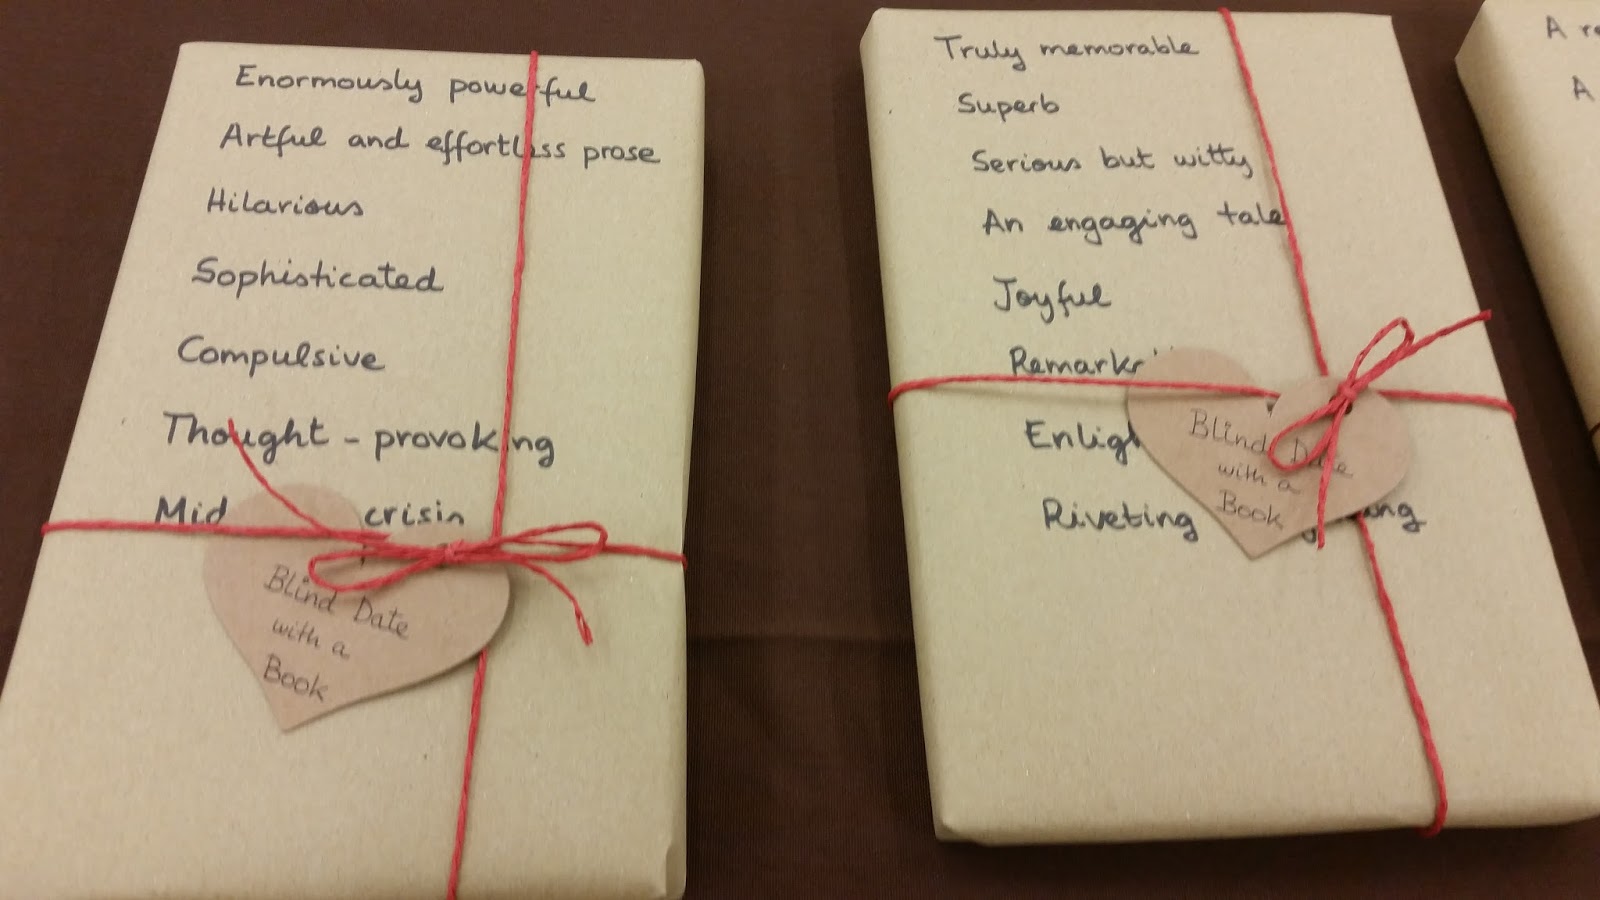 Enormously powerful
Artful and effortless prose
Hilarious
Sophisticated
Compulsive
Thought-provoking
Mid crisis
Blind Date
with a
Book
Truly memorable
Superb
Serious but witty
An engaging tale
Joyful
Riveting
Blind Date
with a
Book
A
A